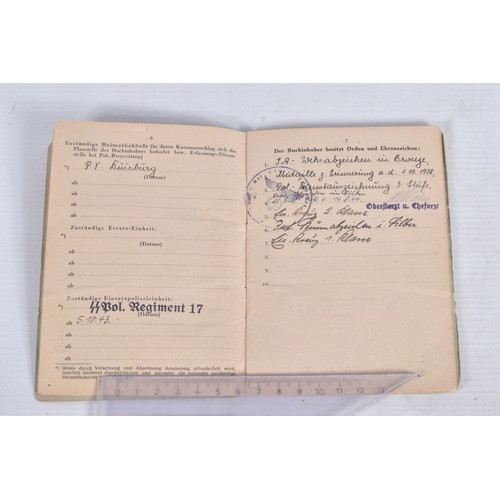 6
Zuständige Heimatbehörde (in deren Kassenanschlag sich die
Planstelle des Buchinhabers befindet bzw. Erfassungs-Dienst-
stelle bei Pol.-Reservisten)
*) P.V. Duisburg
(Datum)
ab
ab
ab
Zuständige Ersatz-Einheit:
*)
(Datum)
ab
ab
ab
Zuständige Einsatzpolizeieinheit:
*) SS Pol. Regiment 17
(Datum)
ab 5.10.43.
ab
ab
ab
*) Wenn durch Versetzung und Abordnung Aenderung erforderlich wird,
7
Der Buchinhaber besitzt Orden und Ehrenzeichen:
1. SA-Wehrabzeichen in Bronze,
Medaille z. Erinnerung a. d. 1.10.1938,
Pol.-Dienstauszeichnung 3. Stufe,
Oberstarzt u. Chefarzt
Eis. Kreuz 2. Klasse
Inf. Sturmabzeichen i. Silber
Eis. Kreuz 1. Klasse
10.
0 1 2 3 4 5 6 7 8 9 10 11 12 13 14 15